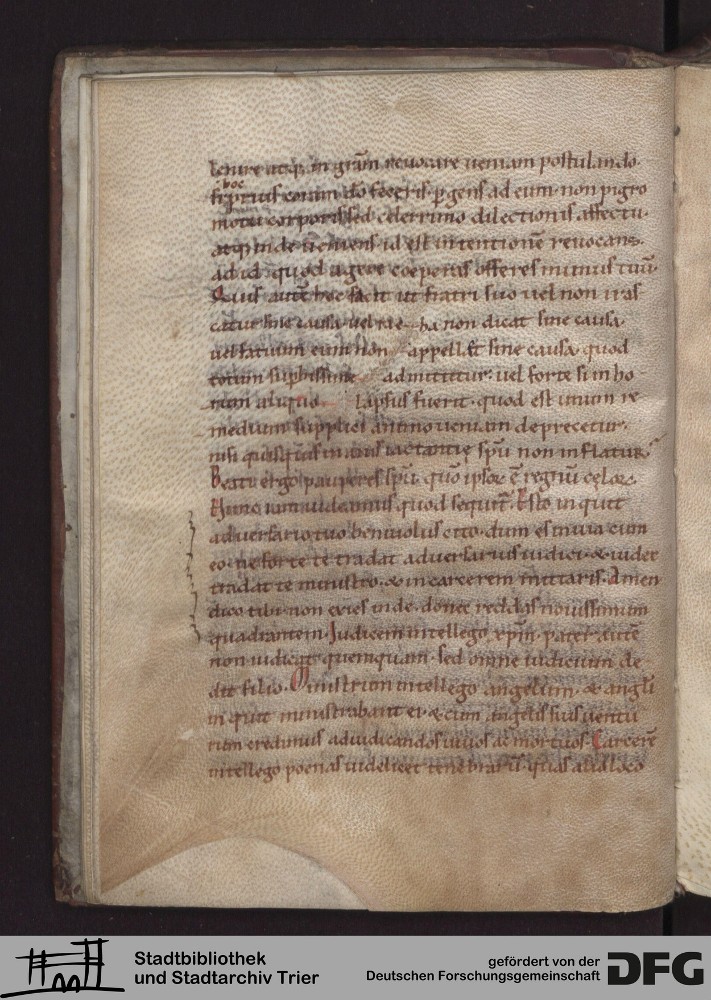 lenire atq; in grãm reuocare ueniam postulando.
hoc
si prius coram dõ feceris. pgens ad eum. non pigro
motu corporis. sed celerrimo dilectionis affectu.
atq; inde ueniens id est intentionẽ reuocans.
ad id quod agere coeperas offeres munus tuũ.
Quis autẽ hoc facit ut fratri suo uel non iras
catur sine causa. uel rac ha non dicat sine causa.
uel fatuum eum non appellet sine causa. quod
totum supbissime admittitur. uel forte si in ho
rum aliquo lapsus fuerit. quod est unum re
medium supplici animo ueniam deprecetur.
nisi quisquis inanis iactantię spũ non inflatur.
Beati ergo pauperes spũ. quõ ipsor ẽ regnũ cęlor.
Nunc iam uideamus quod sequit. Esto inquit
aduersario tuo beniuolus cito. dum es in uia cum
eo. ne forte te tradat aduersarius iudici. & iudex
tradat te ministro. & in carcerem mittaris. Amen
dico tibi. non exies inde. donec reddas nouissimum
quadrantem. Iudicem intellego xpm. pater autẽ
non iudicat quemquam. sed omne iudicium de
dit filio. Ministrum intellego angelum. & angli
inquit ministrabant ei. & cum angelis suis uentu
rum credimus ad iudicandos uiuos ac mortuos. Carcerẽ
intellego poenas uidelicet tenebrarũ. quas alio loco
Stadtbibliothek
und Stadtarchiv Trier
gefördert von der
Deutschen Forschungsgemeinschaft
DFG